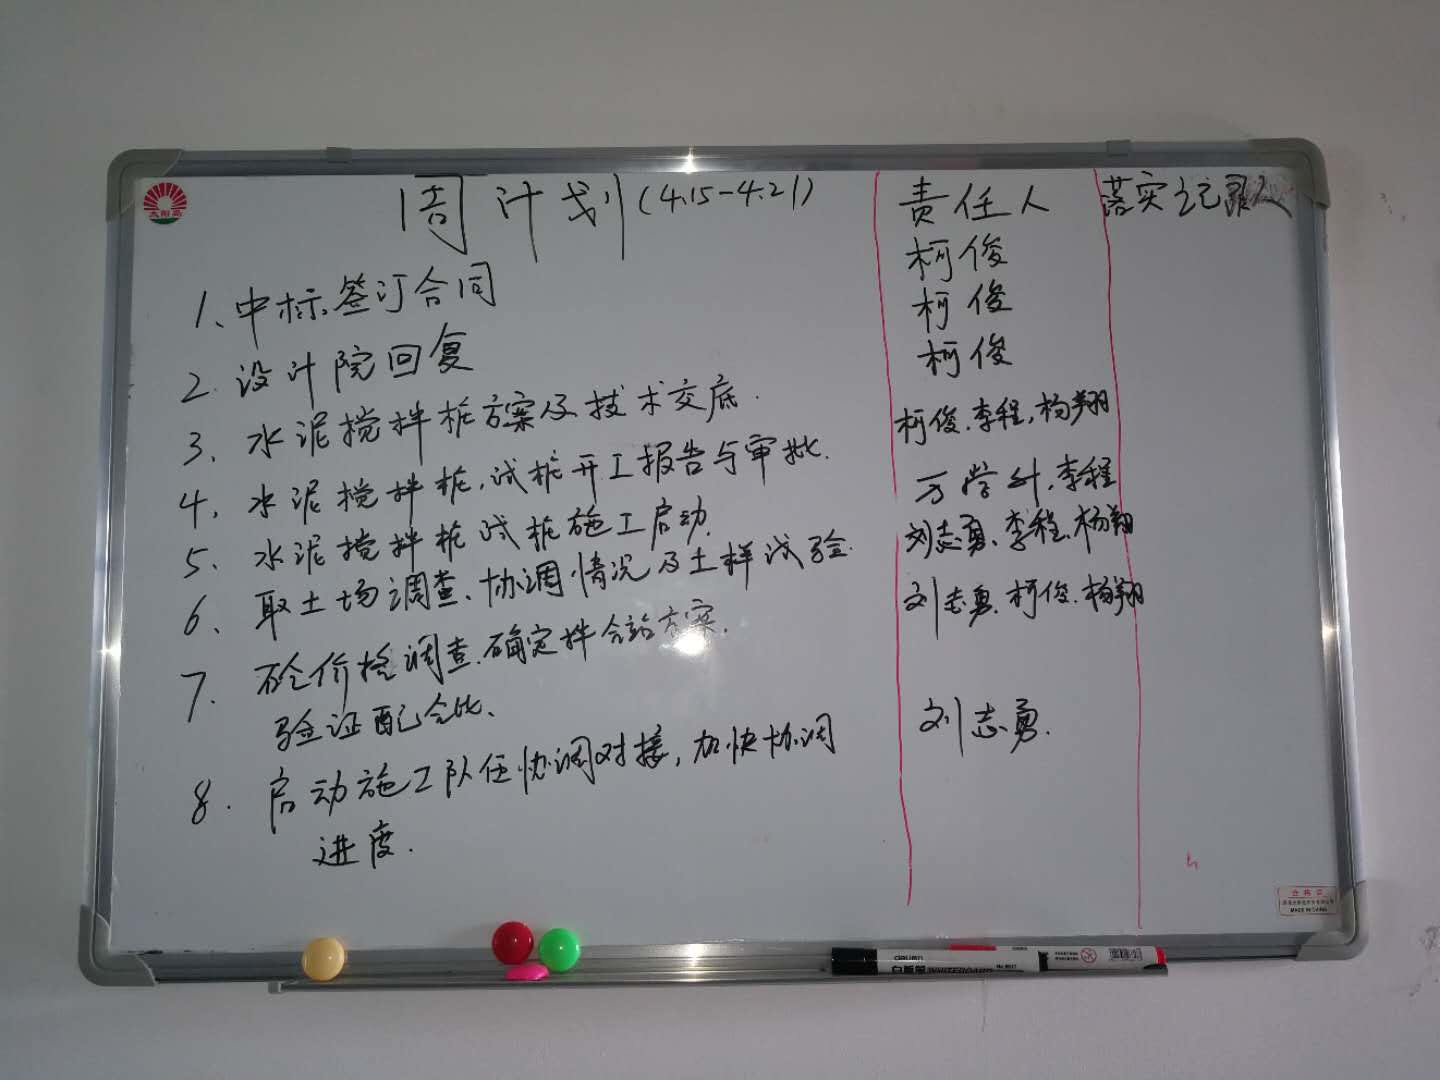 周计划(4.15-4.21)
责任人
落实记录人
1、中标签订合同
柯俊
2. 设计院回复
柯俊
3、水泥搅拌桩方案及技术交底.
柯俊
4、水泥搅拌桩,试桩开工报告与审批.
柯俊.李程,杨翔
5、水泥搅拌桩试桩施工启动.
万学升,李程
6、取土场调查、协调情况及土样试验.
刘志勇、李程.杨翔
7. 砼价格调查.确定拌合站方案.
刘志勇、柯俊.杨翔
验证配合比、
8. 启动施工队伍协调对接,加快协调
刘志勇.
进度.
太阳高
合格证
MADE IN CHINA
deli
白板笔 WHITEBOARD